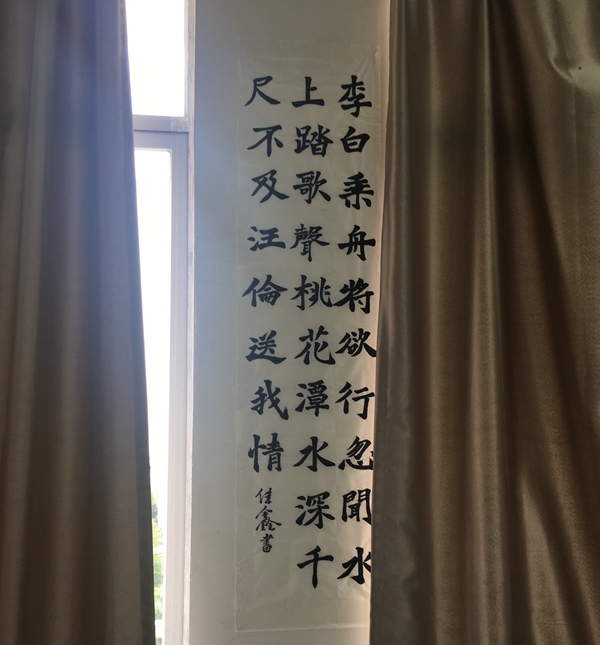 李白乘舟将欲行忽聞水
上踏歌聲桃花潭水深千
尺不及汪倫送我情
佳鑫書